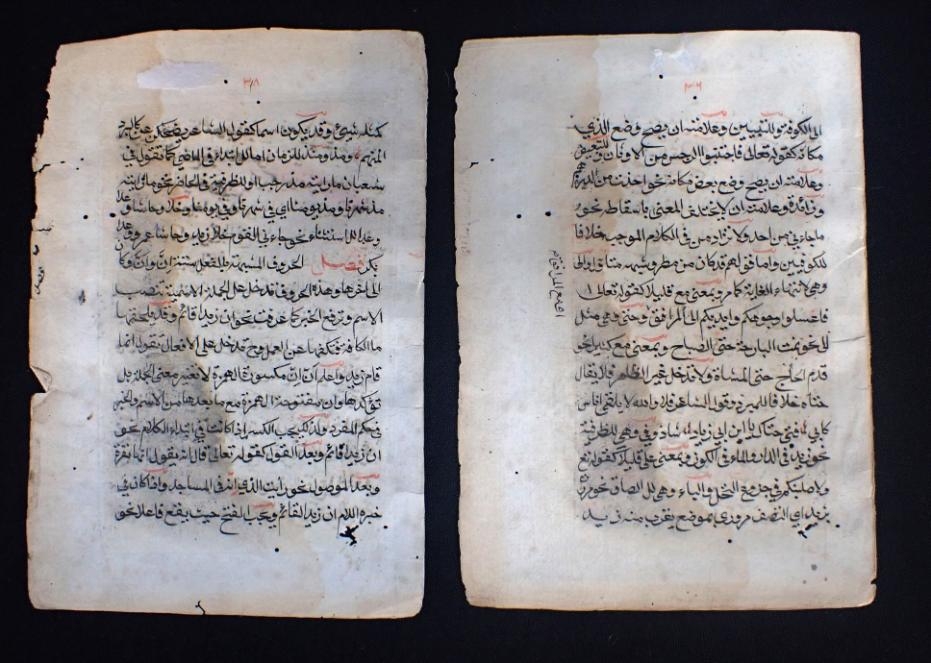 ٣٦
الى الكوفة وللتبيين وعلامته ان يصح وضع الذي
مكانه كقوله تعالى فاجتنبوا الرجس من الاوثان وللتبعيض
وعلامته ان يصح وضع بعض مكانه نحو اخذت من الدراهم
وزائدة وعلامته ان لا يختل المعنى باسقاطه نحو
ما جاءني من احد ولا تزاد من في الكلام الموجب خلافا
للكوفيين واما قولهم قد كان من مطر وشبهه متاول والى
وهي لانتهاء الغاية كما مر وبمعنى مع قليلا كقوله تعالى
فاغسلوا وجوهكم وايديكم الى المرافق وحتى وهي مثل
الى نحو نمت البارحة حتى الصباح وبمعنى مع كثيرا نحو
قدم الحاج حتى المشاة ولا تدخل غير الظاهر فلا يقال
حتاه خلافا للمبرد وقول الشاعر فلا والله لا يلقى اناس
فتى حتاك يا ابن ابي زياد شاذ وفي وهي للظرفية
نحو زيد في الدار والماء في الكوز وبمعنى على قليلا كقوله تع
ولاصلبنكم في جذوع النخل والباء وهي للالصاق نحو مررت
بزيد اي التصق مروري بموضع يقرب منه زيد
٣٨
كمثله شيء وقد يكون اسما كقول الشاعر يضحكن عن كالبرد
المنهم ومذ ومنذ للزمان اما للابتداء في الماضي كما تقول في
شعبان ما رايته مذ رجب او للظرفية في الحاضر نحو ما رايته
مذ شهرنا ومنذ يومنا اي في شهرنا وفي يومنا وخلا وحاشا
وعدا للاستثناء نحو جاءني القوم خلا زيد وحاشا عمرو وعدا
بكر فصل الحروف المشبهة بالفعل ستة ان وان وكان
الى اخرها وهذه الحروف تدخل على الجملة الاسمية تنصب
الاسم وترفع الخبر كما عرفت نحو ان زيدا قائم وقد يلحقها
ما الكافة فتكفها عن العمل وح تدخل على الافعال تقول انما
قام زيد واعلم ان ان مكسورة الهمزة لا تغير معنى الجملة بل
تؤكدها وان مفتوحة الهمزة مع ما بعدها من الاسم والخبر
في حكم المفرد ولذلك يجب الكسر اذا كانت في ابتداء الكلام نحو
ان زيدا قائم وبعد القول كقوله تعالى قال انه يقول انها بقرة
وبعد الموصول نحو رايت الذي انه في المساجد واذا كان في
خبره اللام ان زيدا لقائم ويجب الفتح حيث يقع فاعلا نحو